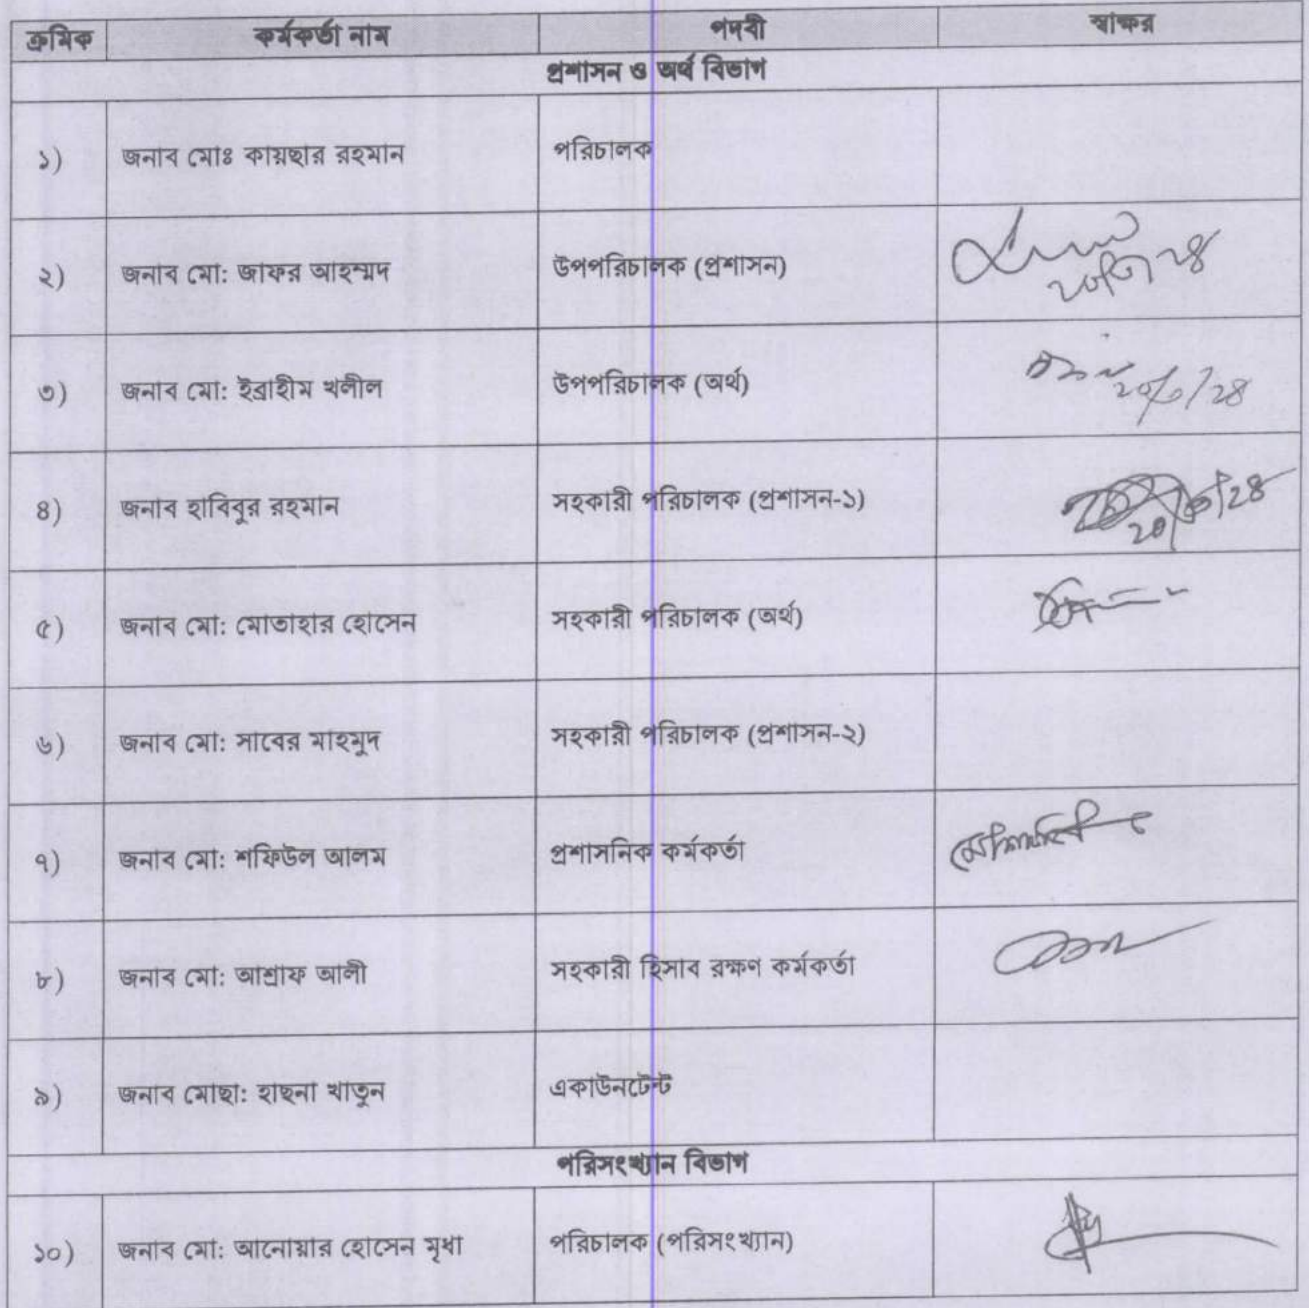 ক্রমিক কর্মকর্তা নাম পদবী স্বাক্ষর
প্রশাসন ও অর্থ বিভাগ
১) জনাব মোঃ কায়ছার রহমান পরিচালক
২) জনাব মো: জাফর আহম্মদ উপপরিচালক (প্রশাসন)
৩) জনাব মো: ইব্রাহীম খলীল উপপরিচালক (অর্থ)
৪) জনাব হাবিবুর রহমান সহকারী পরিচালক (প্রশাসন-১)
৫) জনাব মো: মোতাহার হোসেন সহকারী পরিচালক (অর্থ)
৬) জনাব মো: সাবের মাহমুদ সহকারী পরিচালক (প্রশাসন-২)
৭) জনাব মো: শফিউল আলম প্রশাসনিক কর্মকর্তা
৮) জনাব মো: আশ্রাফ আলী সহকারী হিসাব রক্ষণ কর্মকর্তা
৯) জনাব মোছা: হাছনা খাতুন একাউনটেন্ট
পরিসংখ্যান বিভাগ
১০) জনাব মো: আনোয়ার হোসেন মৃধা পরিচালক (পরিসংখ্যান)